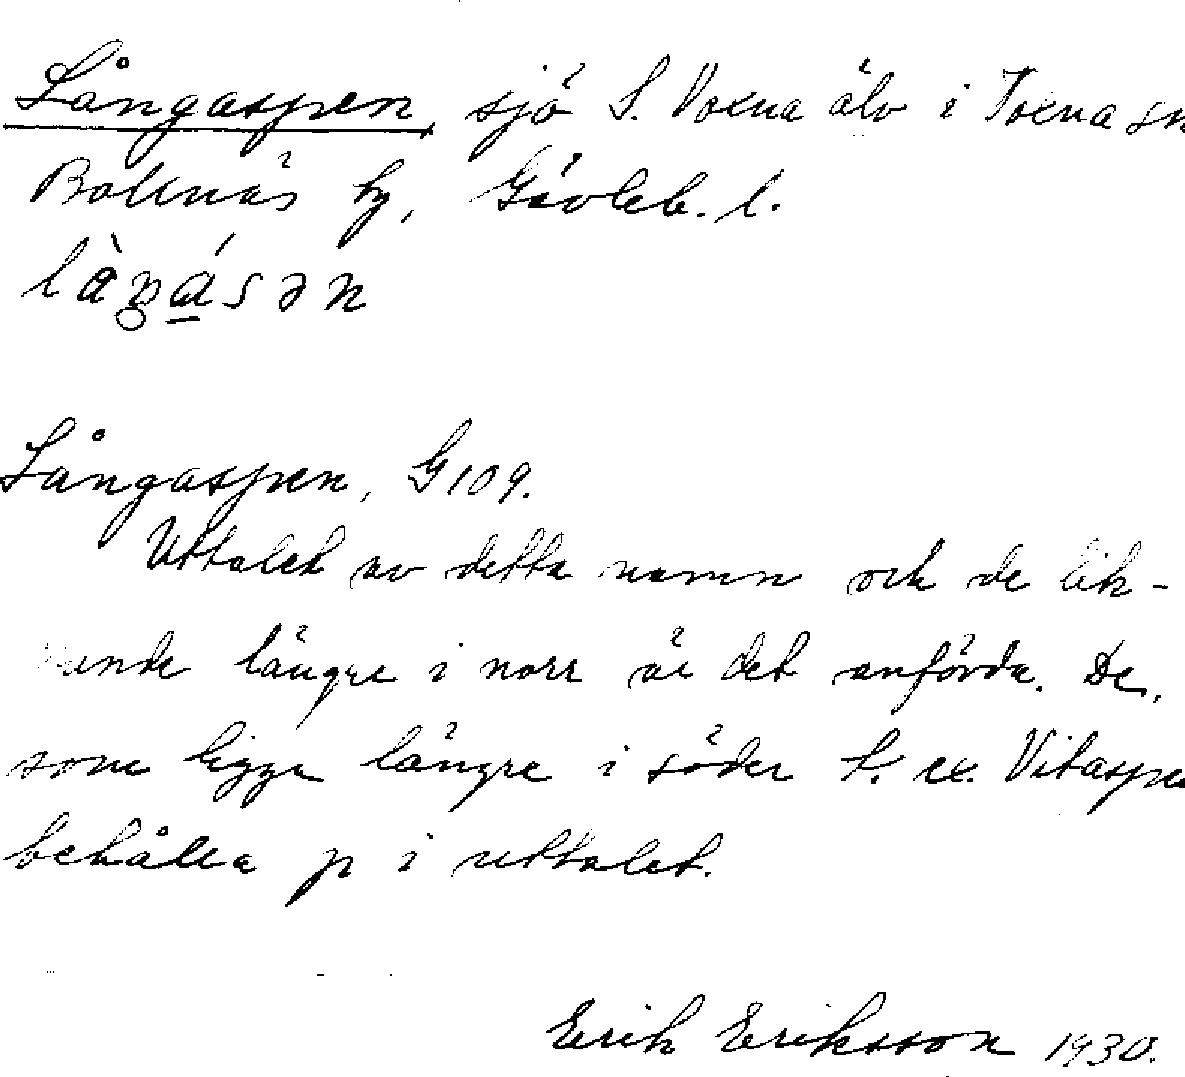 Långaspen, sjö S. Voxna älv i Voxna sn
Bollnäs tg, Gävleb. l.
Långaspen, G109.
Uttalet av detta namn och de lik-
nande längre i norr är det anförda. De,
som ligga längre i söder t. ex. Vitaspen
behålla p i uttalet.
Erik Eriksson 1930.